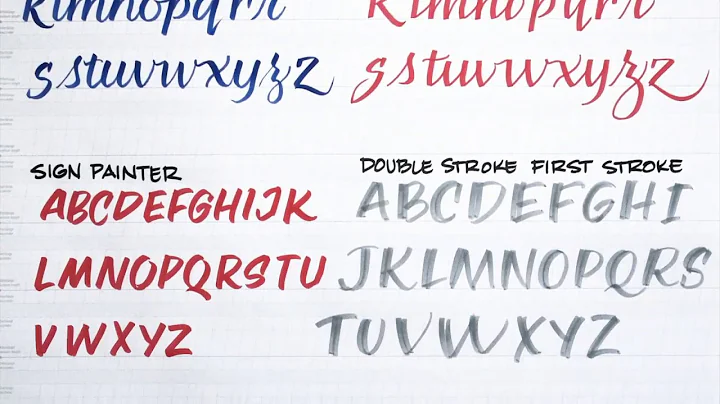 klmnopqrr
sstuvwxyzz
klmnopqrr
sstuvwxyzz
SIGN PAINTER
ABCDEFGHIJK
LMNOPQRSTU
VWXYZ
DOUBLE STROKE FIRST STROKE
ABCDEFGHI
JKLMNOPQRS
TUVWXYZ